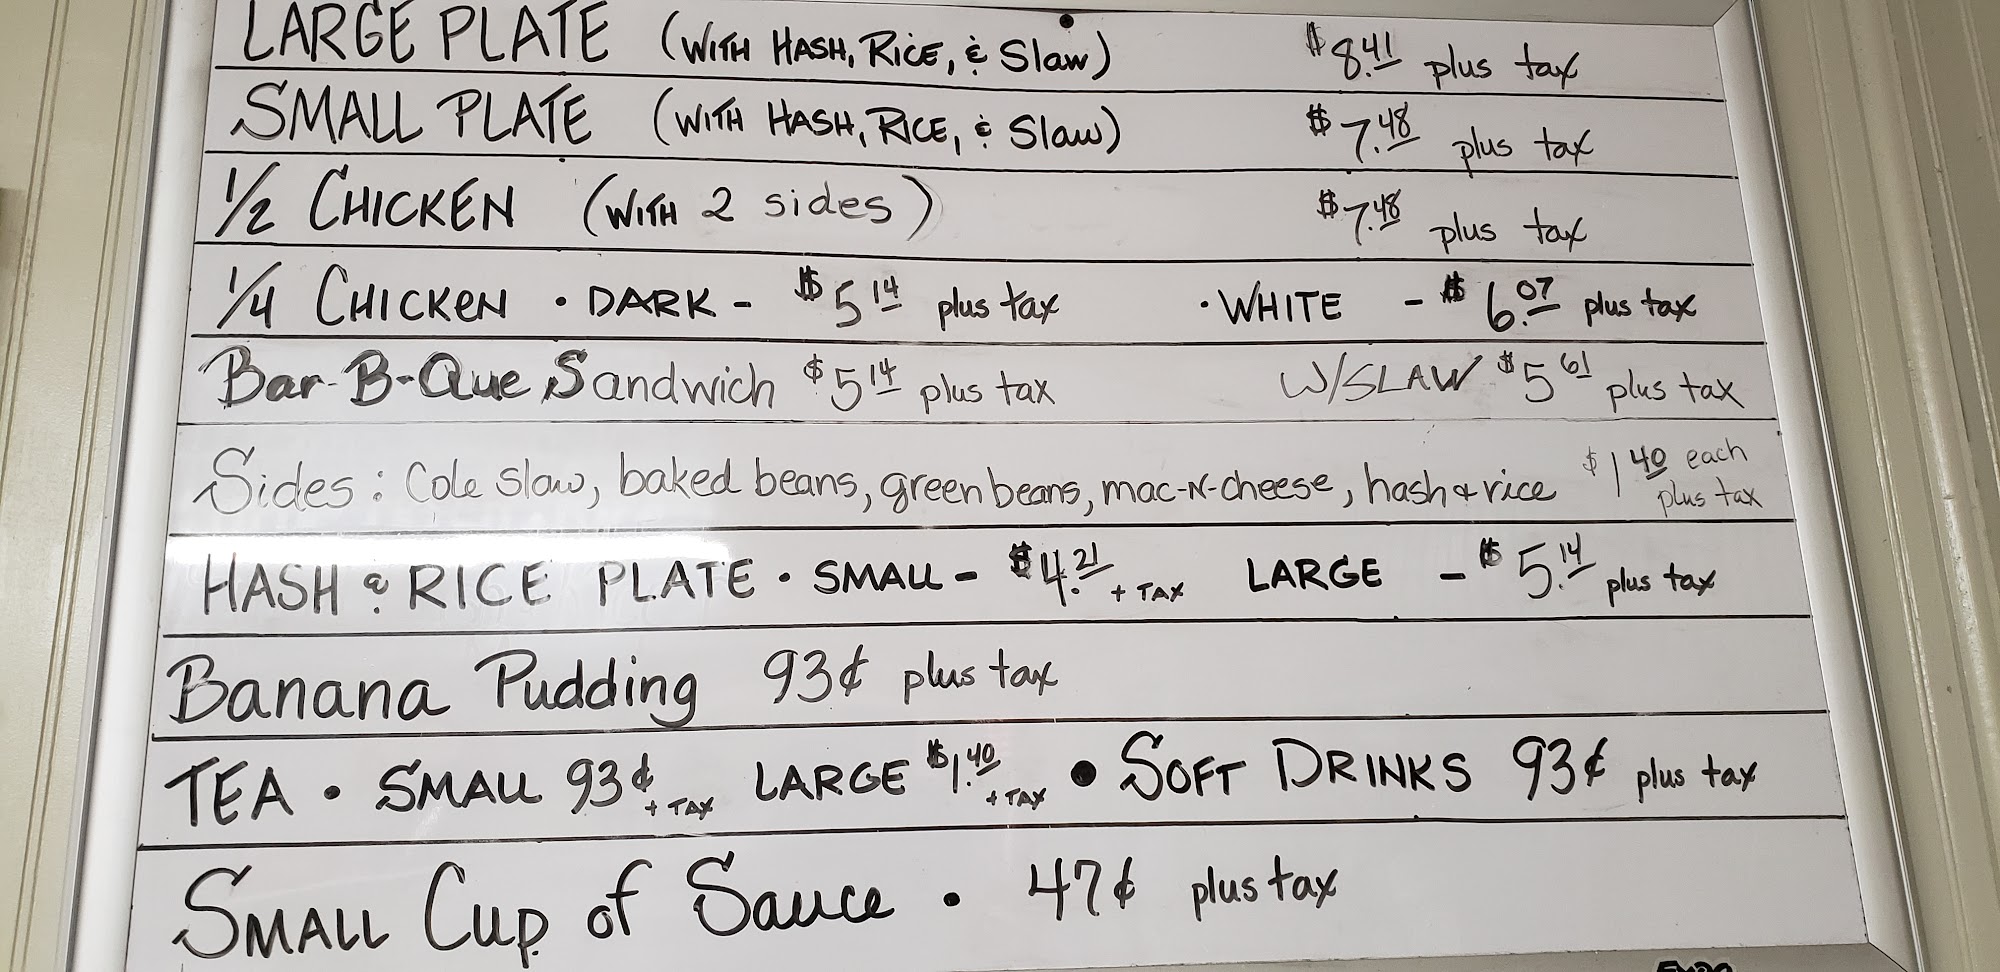 LARGE PLATE (WITH HASH, RICE, & Slaw) $8.41 plus tax
SMALL PLATE (WITH HASH, RICE, & Slaw) $7.48 plus tax
1/2 CHICKEN (WITH 2 sides) $7.48 plus tax
1/4 CHICKEN • DARK - $5 14 plus tax • WHITE - $6.07 plus tax
Bar-B-Que Sandwich $5 14 plus tax W/SLAW $5 61 plus tax
Sides: Cole slaw, baked beans, green beans, mac-N-cheese, hash & rice $1 40 each plus tax
HASH & RICE PLATE • SMALL - $4.21 + TAX LARGE - $5.14 plus tax
Banana Pudding 93¢ plus tax
TEA • SMALL 93¢ + TAX LARGE $1.40 + TAX • SOFT DRINKS 93¢ plus tax
SMALL Cup of Sauce • 47¢ plus tax